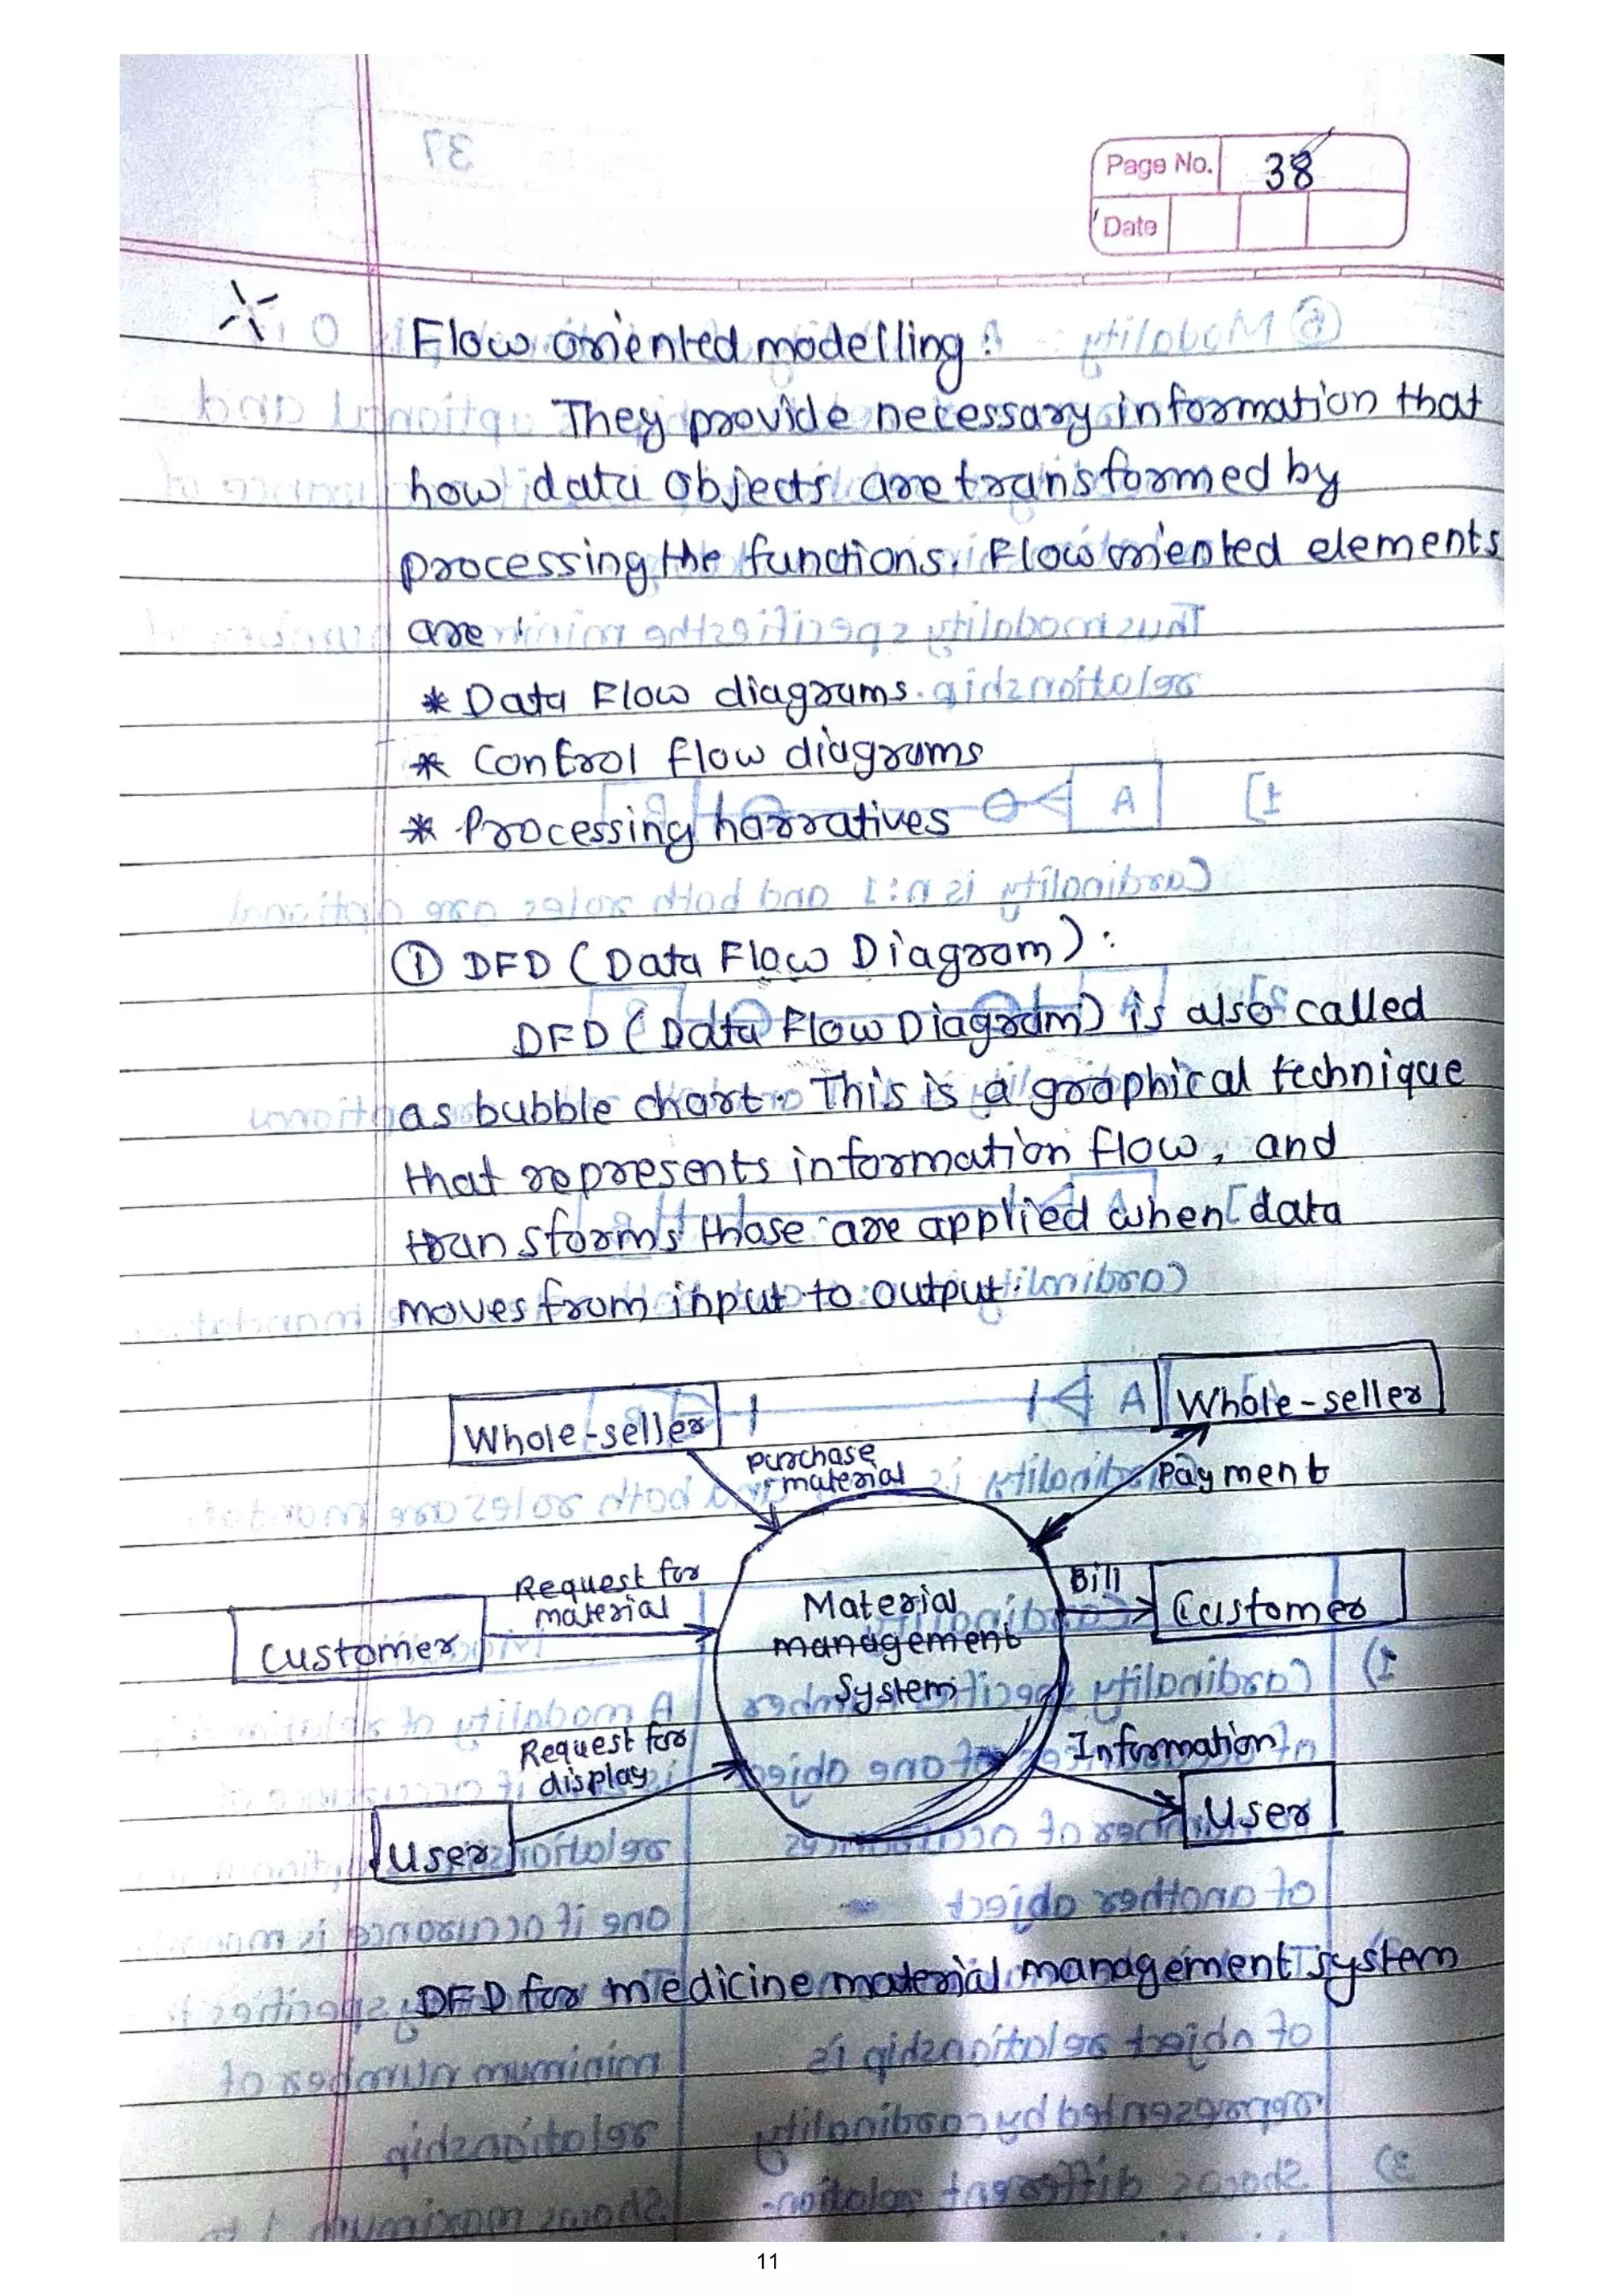 Page No. 38
Date
Flow oriented modelling :
They provide necessary information that
how data objects are transformed by
processing the functions. Flow oriented elements
are :
* Data Flow diagrams.
* Control flow diagrams
* Processing narratives
① DFD ( Data Flow Diagram ) :
DFD ( Data Flow Diagram) is also called
as bubble chart. This is a graphical technique
that represents information flow, and
transforms those are applied when data
moves from input to output.
Whole-seller
Whole-seller
purchase
material
Payment
Request for
material
Bill
Customer
Material
management
System
Customer
Request for
display
Information
User
User
DFD for medicine material management system
11